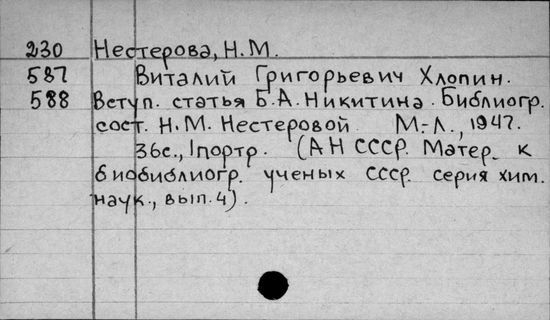 230 Нестерова, Н.М.
587 Виталий Григорьевич Хлопин.
588 Вступ. статья Б.А. Никитина. Библиогр.
сост. Н.М. Нестеровой М.-Л., 1947.
36с., 1портр. (АН СССР. Матер. к
биобиблиогр. ученых СССР. серия хим.
наук., вып. 4).